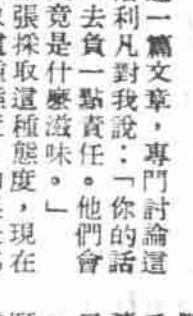 一篇文章，專門討論這
利凡對我說：「你的話
去負一點責任。他們會
竟是什麼滋味。」
張採取這種態度，現在